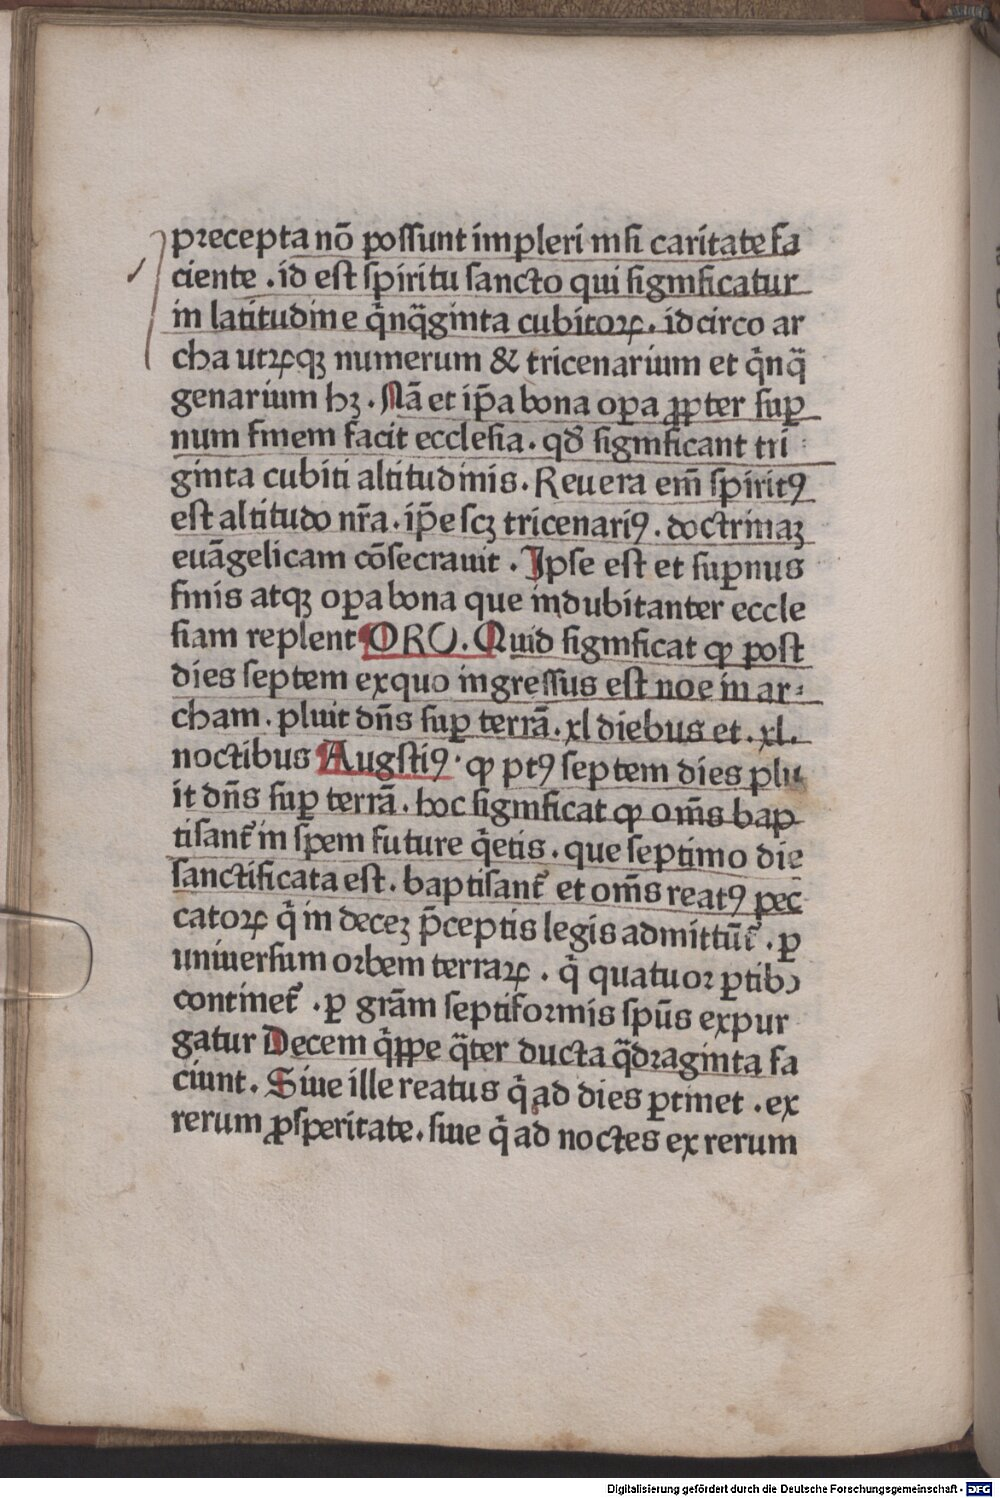 precepta nō possunt impleri nisi caritate fa
ciente . id est spiritu sancto qui significatur
in latitudine q̄nq̄ginta cubitoꝝ. idcirco ar
cha utrꝝqꝫ numerum & tricenarium et q̄nq̄
genarium hꝫ . Nā et ip̄a bona oꝑa ꝓpter suꝑ
num finem facit ecclesia . qđ significant tri
ginta cubiti altitudinis . Reuera em̄ spiritꝰ
est altitudo nr̄a . ip̄e scꝫ tricenariꝰ . doctrinaꝫ
euāgelicam cōsecrauit . Ipse est et suꝑnus
finis atqꝫ oꝑa bona que indubitanter eccle
siam replent ORO. Quid significat ꝙ post
dies septem exquo ingressus est noe in ar⸗
cham . pluit dn̄s suꝑ terrā . xl diebus et . xl.
noctibus Augstiꝰ · ꝙ ptꝰ septem dies plu
it dn̄s suꝑ terrā . hoc significat ꝙ om̄s bap
tisant᷑ in spem future q̄etis . que septimo die
sanctificata est . baptisant᷑ et om̄s reatꝰ pec
catoꝝ q̄ in deceꝫ p̄ceptis legis admittūt᷑ . ꝑ
uniuersum orbem terraꝝ . q̄ quatuor ꝑtibꝰ
continet᷑ . ꝑ grām septiformis spūs expur
gatur Decem q̄ꝑpe q̄ter ducta q̄draginta fa
ciunt . Siue ille reatus q̄ ad dies ꝑtinet . ex
rerum ꝓsperitate . siue q̄ ad noctes ex rerum
Digitalisierung gefördert durch die Deutsche Forschungsgemeinschaft - DFG